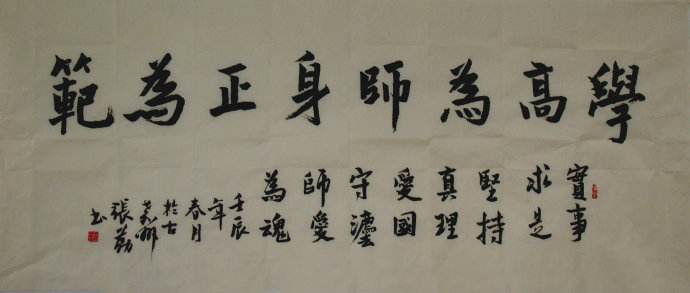 學高為師身正為範
實事
求是
堅持
真理
愛國
守灋
師愛
為魂
壬辰
年
春月
於古
莫州
張
書